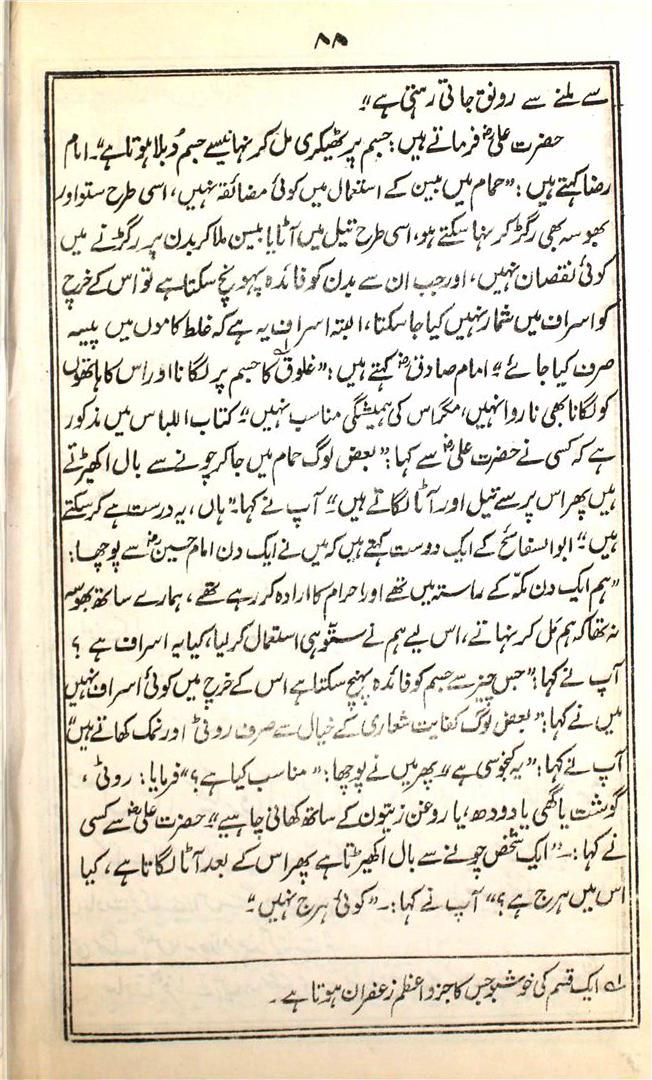 ۸۸
سے ملنے سے رونق جاتی رہتی ہے“۔
حضرت علیؓ فرماتے ہیں: جسم پر ٹھیکری مل کر نہانیسے جسم دُبلا ہوتا ہے“۔ امام
رضا کہتے ہیں: ”حمام میں بیسن کے استعمال میں کوئی مضائقہ نہیں، اسی طرح ستو اور
بھوسہ بھی رگڑ کر نہا سکتے ہو، اسی طرح تیل میں آٹا یا بیسن ملا کر بدن پر رگڑنے میں
کوئی نقصان نہیں، اور جب ان سے بدن کو فائدہ پہونچ سکتا ہے تو اس کے خرچ
کو اسراف میں شمار نہیں کیا جا سکتا، البتہ اسراف یہ ہے کہ غلط کاموں میں پیسہ
صرف کیا جائے“ امام صادقؓ کہتے ہیں: ”غلوق کا جسم پر لگانا اور اس کا ہاتھوں
کو لگانا بھی ناروا نہیں، مگر اس کی ہمیشگی مناسب نہیں“ کتاب اللباس میں مذکور
ہے کہ کسی نے حضرت علیؓ سے کہا: ”بعض لوگ حمام میں جا کر چونے سے بال اکھیڑتے
ہیں پھر اس پر سے تیل اور آٹا لگاتے ہیں“ آپ نے کہا: ”ہاں، یہ درست ہے کر سکتے
ہیں“ ابو السفاتح کے ایک دوست کہتے ہیں کہ میں نے ایک دن امام حسینؓ سے پوچھا:
”ہم ایک دن مکّہ کے راستہ میں تھے اور احرام کا ارادہ کر رہے تھے، ہمارے ساتھ بھوسہ
نہ تھا کہ ہم مَل کر نہاتے، اس لیے ہم نے ستّو ہی استعمال کر لیا، کیا یہ اسراف ہے ؟
آپ نے کہا: ”جس چیز سے جسم کو فائدہ پہنچ سکتا ہے اس کے خرچ میں کوئی اسراف نہیں
میں نے کہا: ”بعض لوگ کفایت شعاری کے خیال سے صرف روٹی اور نمک کھاتے ہیں“
آپ نے کہا: ”یہ کنجوسی ہے“ پھر میں نے پوچھا: ”مناسب کیا ہے؟“ فرمایا: روٹی،
گوشت یا گھی یا دودھ، یا روغن زیتون کے ساتھ کھانی چاہیے“ حضرت علیؓ سے کسی
نے کہا:۔ ”ایک شخص چونے سے بال اکھیڑتا ہے پھر اس کے بعد آٹا لگاتا ہے، کیا
اس میں ہرج ہے؟“ آپ نے کہا:۔ ”کوئی ہرج نہیں“۔
لہ ایک قسم کی خوشبو جس کا جزو اعظم زعفران ہوتا ہے۔